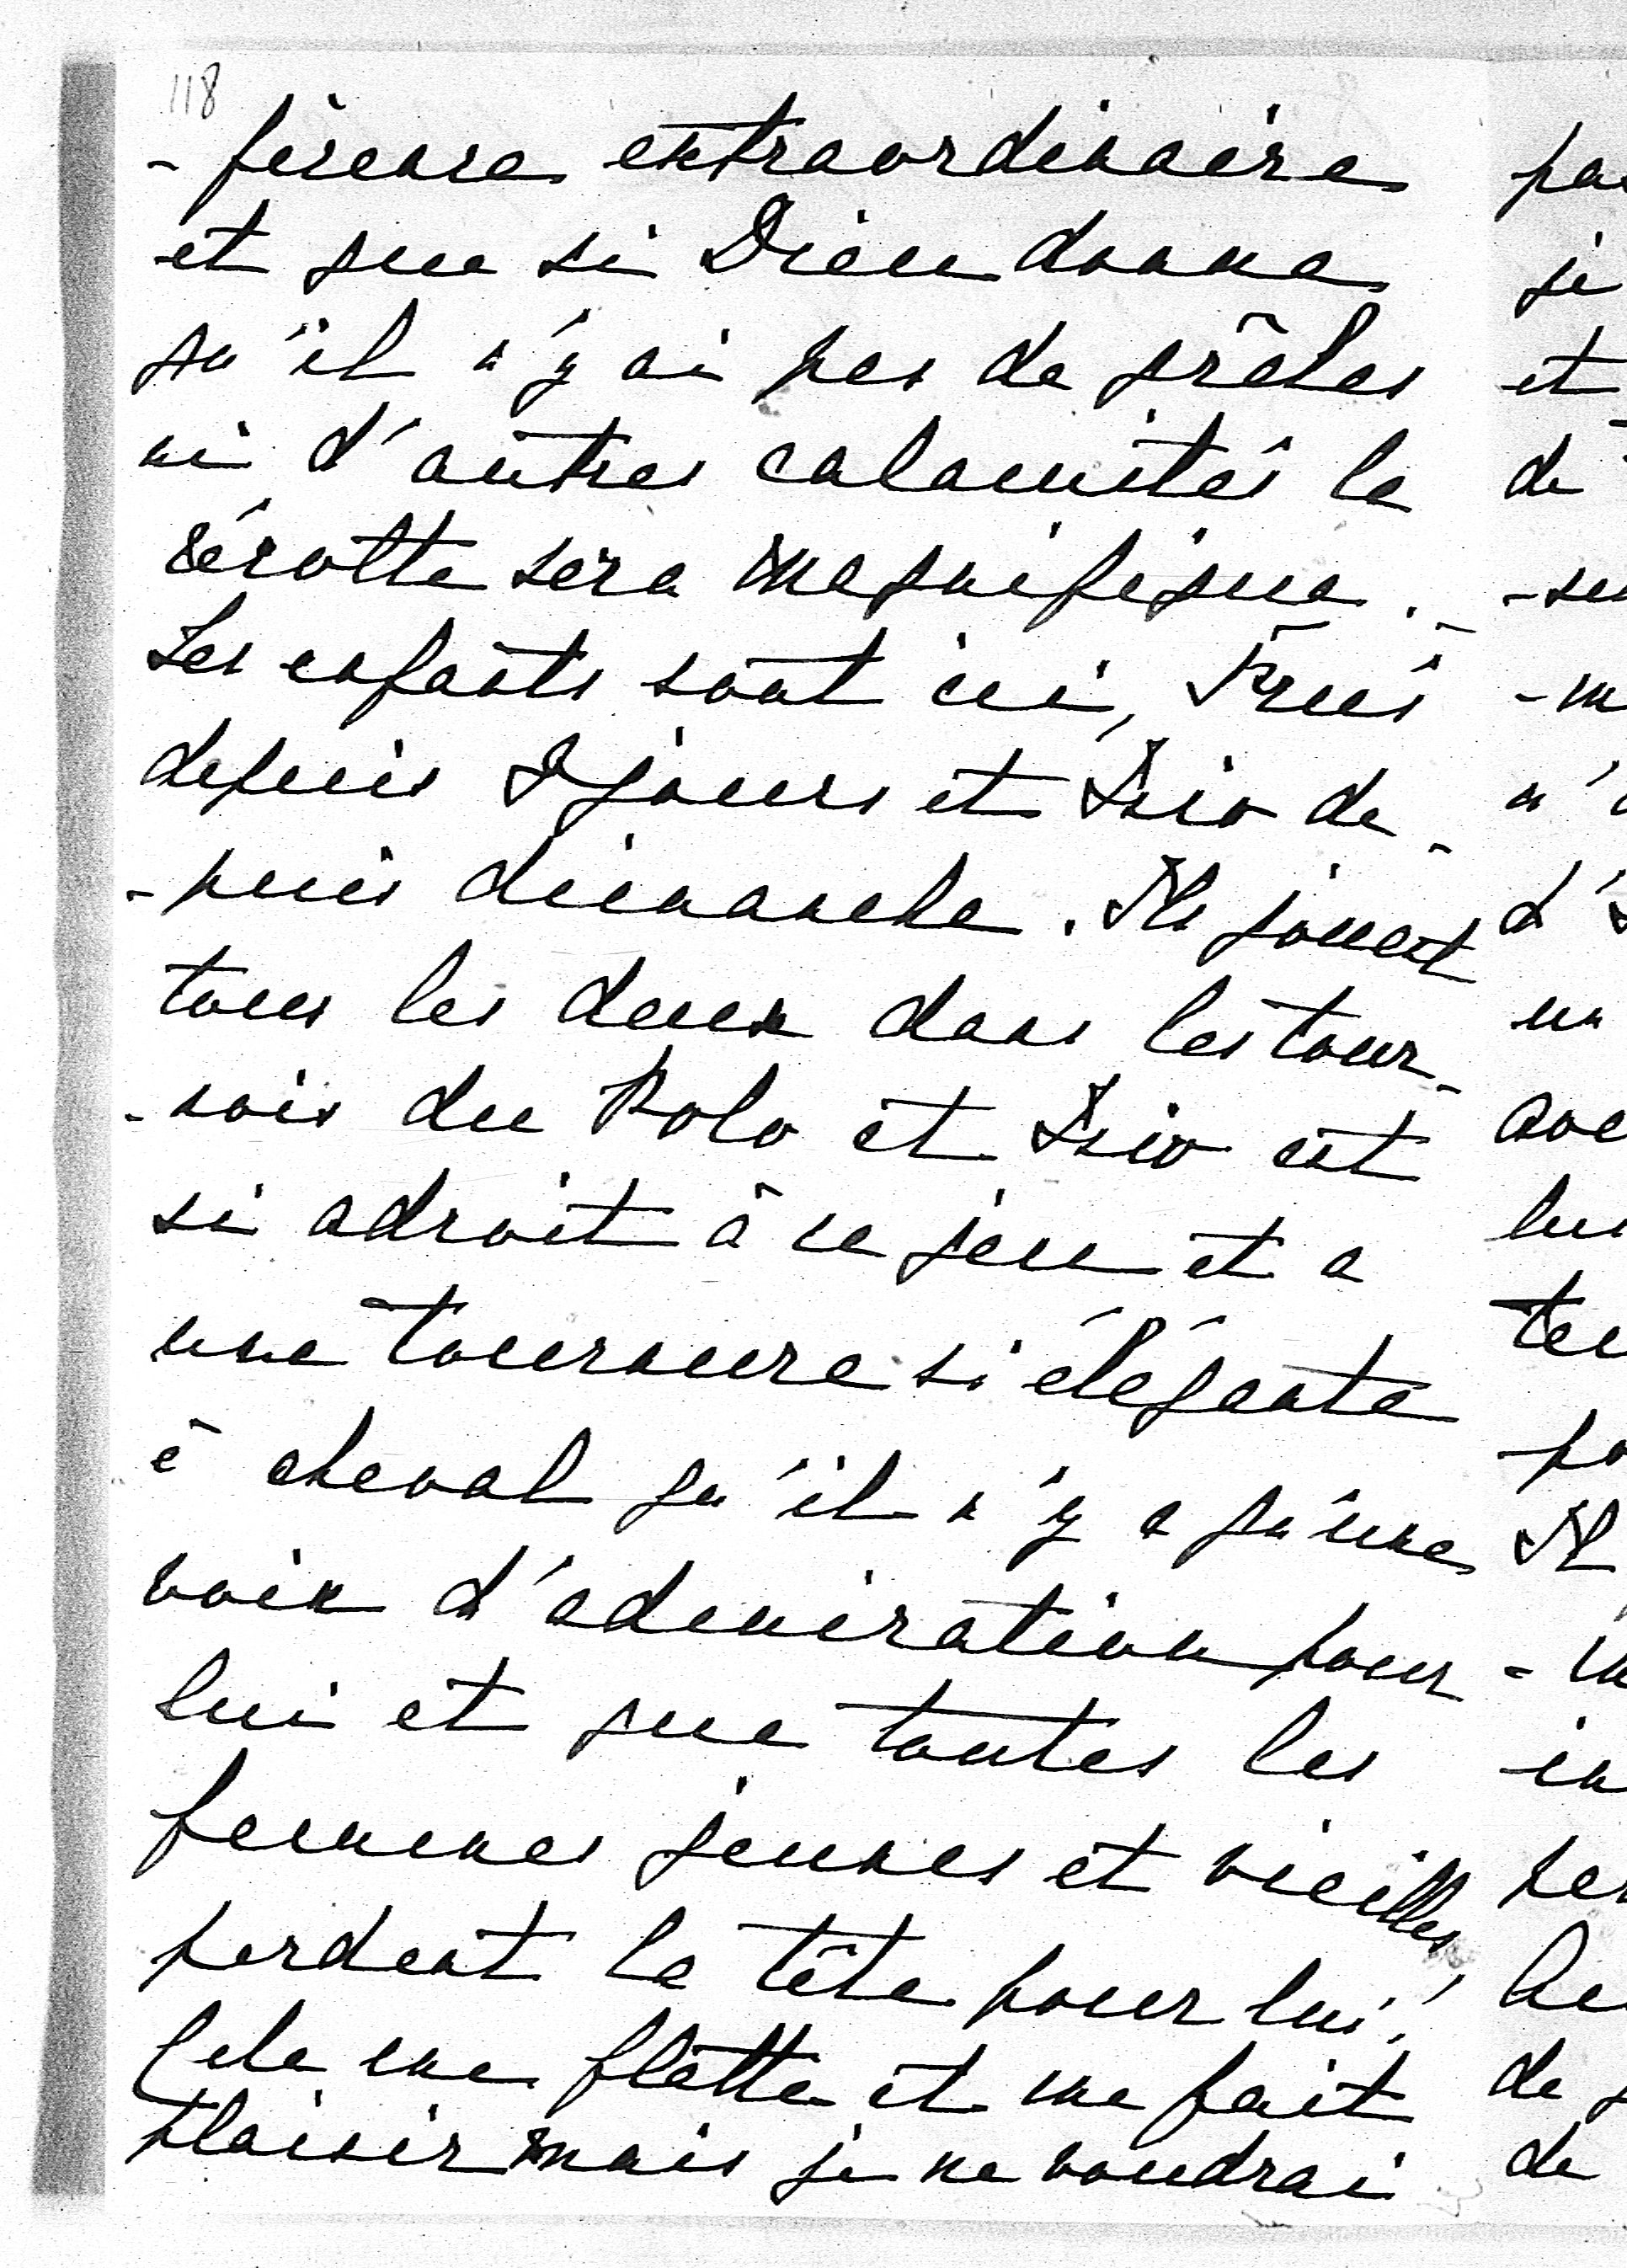 118
-férence extraordinaire
et que si Dieu donne
qu'il n'y ai pas de grêles
ni d'autres calamités la
récolte sera magnifique.
Les enfants sont ici,
depuis 8 jours et de-
-puis dimanche. Ils jouent
tous les deux dans les tour-
-nois du Polo et est
si adroit à ce jeu et a
une tournure si élégante
à cheval qu'il n'y a qu'une
voix d'admiration pour
lui et que toutes les
femmes jeunes et vieilles
perdent la tête pour lui!
Cela me flatte et me fait
plaisir mais je ne voudrai
je
et
de